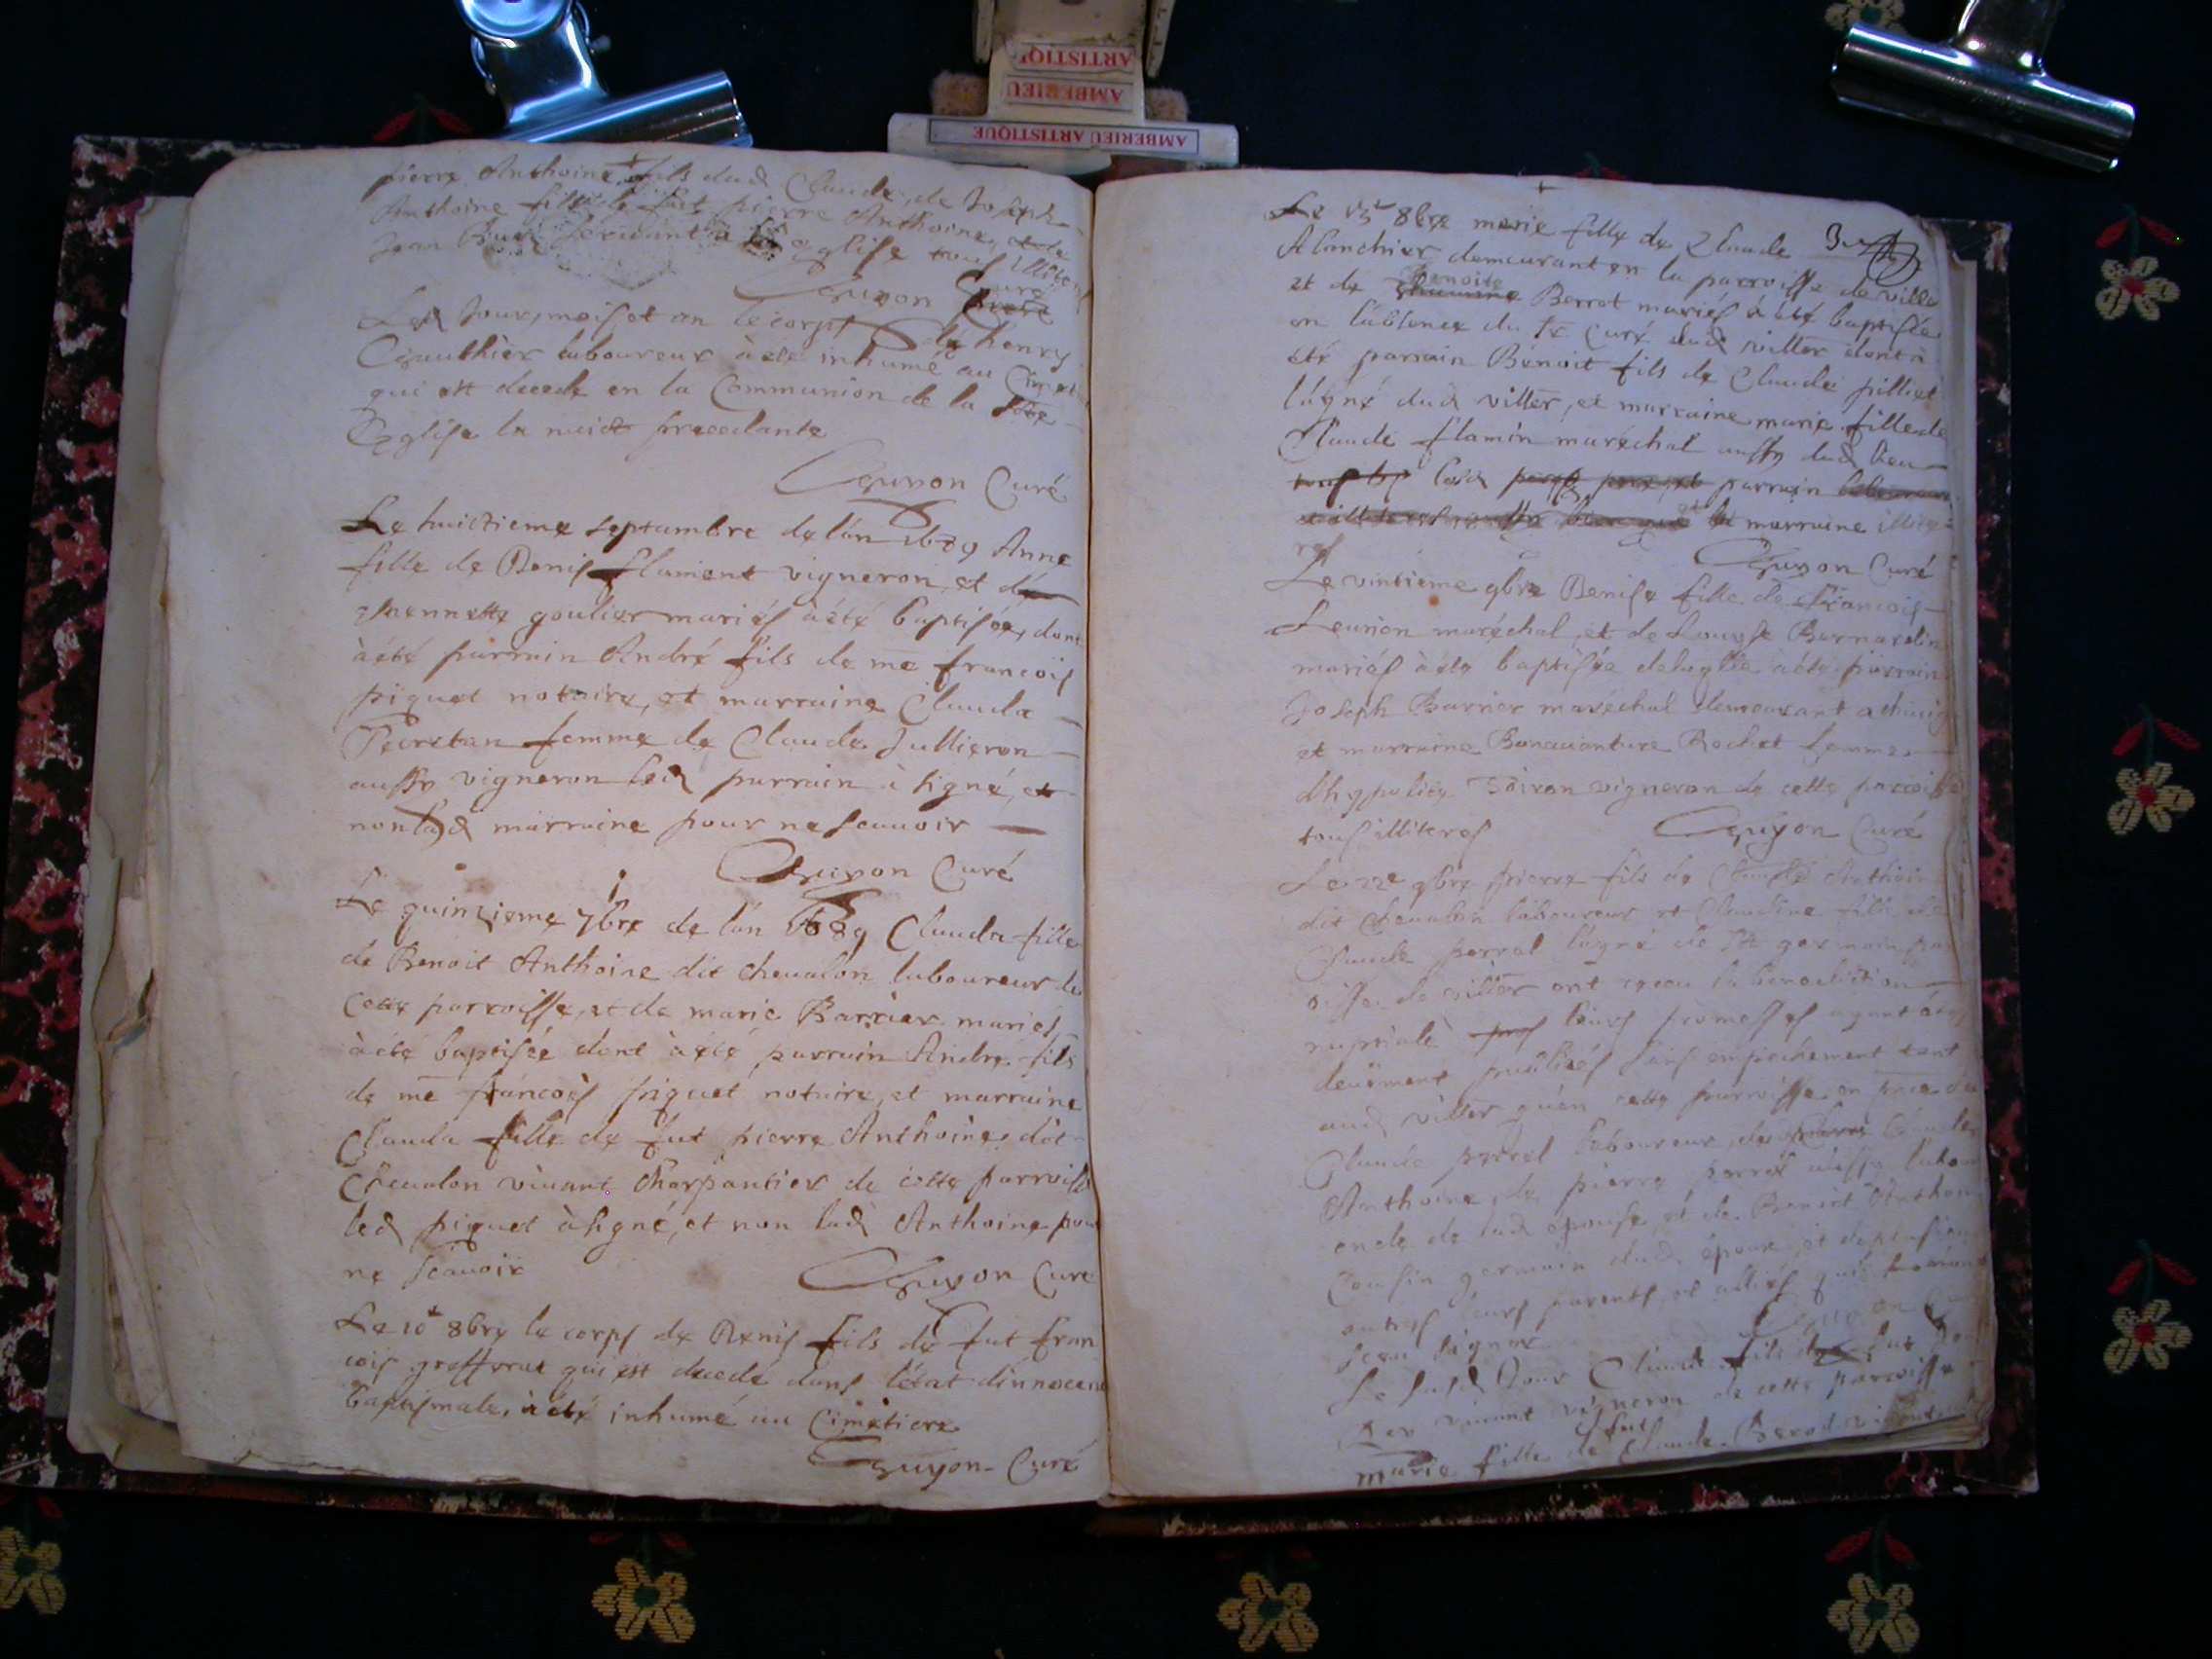 ARTISTIQ
AMBERIEU
AMBERIEU ARTISTIQUE
pierre Anthoine fils dud Claude, de Joseph
Anthoine fils de fut pierre Anthoine, et de
Jean servant a leglise tous illiteres
Guyon Curé
Led Jour, mois et an le corps de henry
Gauthier laboureur à été inhumé au Cimet
qui est decede en la Communion de la Ste
Eglise la nuict precedante
Guyon Curé
Le huictieme septambre de lán 1689 Anne
fille de Denis flament vigneron, et de
goulier mariés à été baptisée, dont
à été parrain André fils de me francois
piquet notaire, et marraine Clauda
femme de Claude Jullieron
aussy vigneron led parrain à signé, et
non lad marraine pour ne scauoir
Guyon Curé
Le quinzieme 7bre de lán 1689 Clauda fille
de Benoit Anthoine dit cheualon laboureur de
cette parroisse, et de marie Barrier mariés
à été baptisée dont à été parrain Andre fils
de me francois piquet notaire, et marraine
Clauda fille de fut pierre Anthoine dit
Cheualon viuant Charpantier de cette parroisse
led piquet à signé, et non lad Anthoine pour
ne scauoir
Guyon Curé
Le 10e 8bre le corps de Denis fils de fut fran
cois grefferat qui est decedé dans létat dinnocence
baptismale, à été inhumé au Cimetiere
Guyon Curé
Le 15e 8bre marie fille de Claude
Blanchier demeurant en la parroisse de ville
et de Benoite Berrot mariés à été baptisée
en lábsence du Sr Curé dud viller dont à
été parrain Benoit fils de Claude pilliet
lágné dud viller, et marraine marie fille de
Claude flamin maréchal aussy dud lieu
tous les led parrain
et la marraine illite
res
Guyon Curé
Le vintieme 9bre Denise fille de francois
Leurion maréchal, et de Louyse Bernardin
mariés à été baptisée à été parrain
Joseph Barrier maréchal demeurant a
et marraine Bonauanture Rochet femme
dhypolite Toiron vigneron de cette parroisse
tous illiteres
Guyon Curé
Le 22e 9bre pierre fils de Claude Anthoine
dit cheualon laboureur et Claudine fille de
Claude perral lágné de St germain, par
oisse de viller ont receu la benediction
nuptiale leurs promesses ayant étés
deüement publiés sans empechement tant
aud viller quén cette parroisse en pnce de
Claude perral laboureur, de Claude
Anthoine, de pierre perral aussy labour
oncle de lad épouse, et de Benoit Anthoine
Cousin germain dud époux, et de plusieurs
autres leurs parents, et alliés qui
sceu signer
Guyon Cu
Le susd Jour Claude fils de fut
viuant vigneron de cette parroisse
marie fille de fut Claude Berod viuant